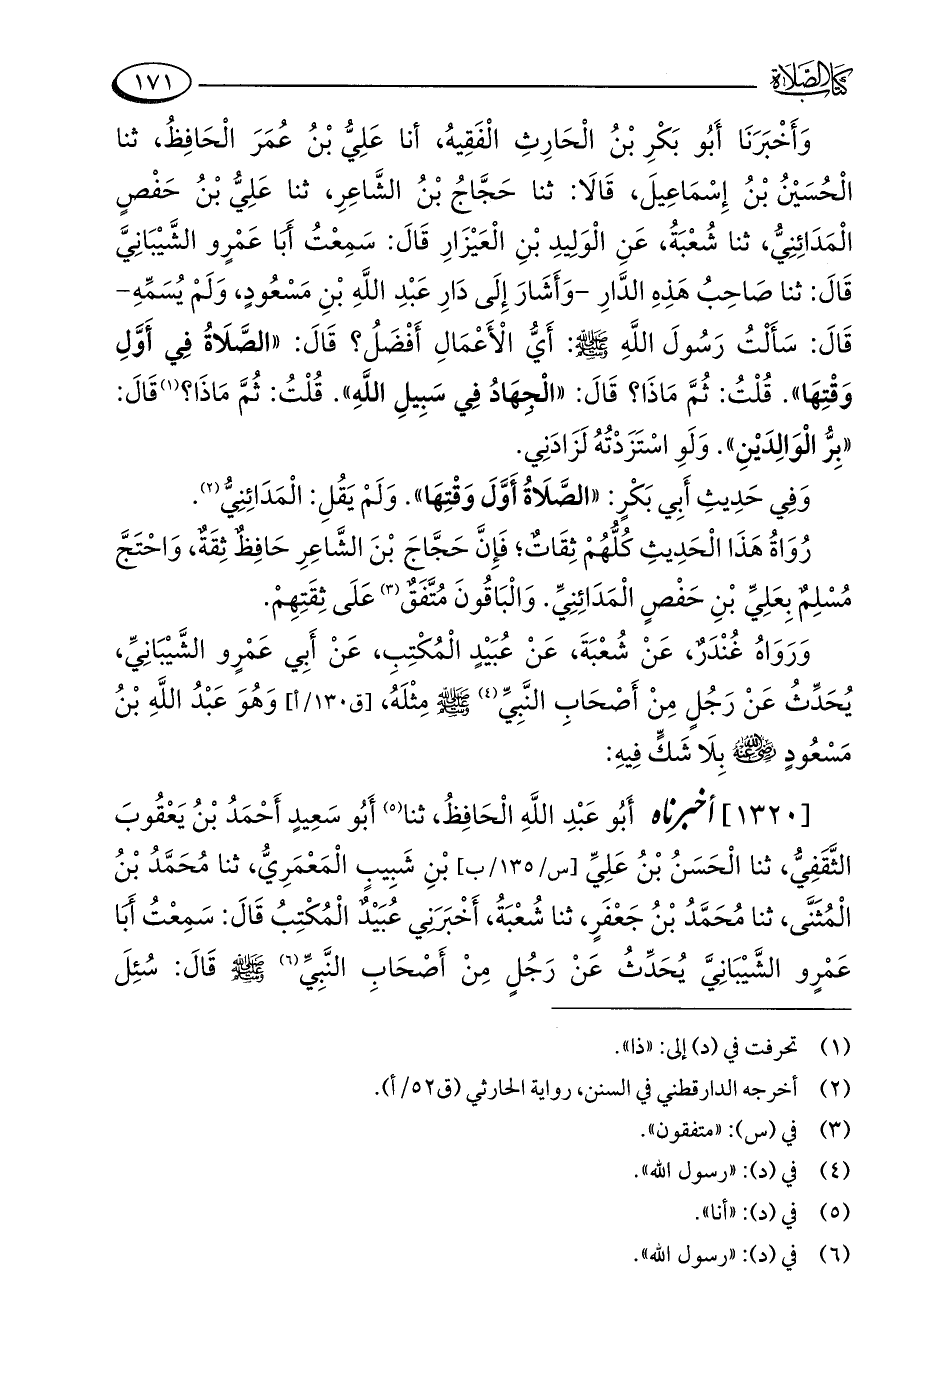 كتاب الصلاة ١٧١
وَأَخْبَرَنَا أَبُو بَكْرِ بْنُ الْحَارِثِ الْفَقِيهُ، أنا عَلِيُّ بْنُ عُمَرَ الْحَافِظُ، ثنا
الْحُسَيْنُ بْنُ إِسْمَاعِيلَ، قَالَا: ثنا حَجَّاجُ بْنُ الشَّاعِرِ، ثنا عَلِيُّ بْنُ حَفْصٍ
الْمَدَائِنِيُّ، ثنا شُعْبَةُ، عَنِ الْوَلِيدِ بْنِ الْعَيْزَارِ قَالَ: سَمِعْتُ أَبَا عَمْرٍو الشَّيْبَانِيَّ
قَالَ: ثنا صَاحِبُ هَذِهِ الدَّارِ -وَأَشَارَ إِلَى دَارِ عَبْدِ اللَّهِ بْنِ مَسْعُودٍ، وَلَمْ يُسَمِّهِ-
قَالَ: سَأَلْتُ رَسُولَ اللَّهِ ﷺ: أَيُّ الْأَعْمَالِ أَفْضَلُ؟ قَالَ: «الصَّلَاةُ فِي أَوَّلِ
وَقْتِهَا». قُلْتُ: ثُمَّ مَاذَا؟ قَالَ: «الْجِهَادُ فِي سَبِيلِ اللَّهِ». قُلْتُ: ثُمَّ مَاذَا؟(١) قَالَ:
«بِرُّ الْوَالِدَيْنِ». وَلَوِ اسْتَزَدْتُهُ لَزَادَنِي.
وَفِي حَدِيثِ أَبِي بَكْرٍ: «الصَّلَاةُ أَوَّلَ وَقْتِهَا». وَلَمْ يَقُلِ: الْمَدَائِنِيُّ(٢).
رُوَاةُ هَذَا الْحَدِيثِ كُلُّهُمْ ثِقَاتٌ؛ فَإِنَّ حَجَّاجَ بْنَ الشَّاعِرِ حَافِظٌ ثِقَةٌ، وَاحْتَجَّ
مُسْلِمٌ بِعَلِيِّ بْنِ حَفْصٍ الْمَدَائِنِيِّ. وَالْبَاقُونَ مُتَّفَقٌ(٣) عَلَى ثِقَتِهِمْ.
وَرَوَاهُ غُنْدَرٌ، عَنْ شُعْبَةَ، عَنْ عُبَيْدٍ الْمُكْتِبِ، عَنْ أَبِي عَمْرٍو الشَّيْبَانِيِّ،
يُحَدِّثُ عَنْ رَجُلٍ مِنْ أَصْحَابِ النَّبِيِّ(٤) ﷺ مِثْلَهُ، [ق١٣٠/أ] وَهُوَ عَبْدُ اللَّهِ بْنُ
مَسْعُودٍ رضي الله عنه بِلَا شَكٍّ فِيهِ:
[١٣٢٠] أخبرناه أَبُو عَبْدِ اللَّهِ الْحَافِظُ، ثنا(٥) أَبُو سَعِيدٍ أَحْمَدُ بْنُ يَعْقُوبَ
الثَّقَفِيُّ، ثنا الْحَسَنُ بْنُ عَلِيِّ [س/١٣٥/ب] بْنِ شَبِيبٍ الْمَعْمَرِيُّ، ثنا مُحَمَّدُ بْنُ
الْمُثَنَّى، ثنا مُحَمَّدُ بْنُ جَعْفَرٍ، ثنا شُعْبَةُ، أَخْبَرَنِي عُبَيْدٌ الْمُكْتِبُ قَالَ: سَمِعْتُ أَبَا
عَمْرٍو الشَّيْبَانِيَّ يُحَدِّثُ عَنْ رَجُلٍ مِنْ أَصْحَابِ النَّبِيِّ(٦) ﷺ قَالَ: سُئِلَ
(١) تحرفت في (د) إلى: «ذا».
(٢) أخرجه الدارقطني في السنن، رواية الحارثي (ق٥٢/أ).
(٣) في (س): «متفقون».
(٤) في (د): «رسول الله».
(٥) في (د): «أنا».
(٦) في (د): «رسول الله».